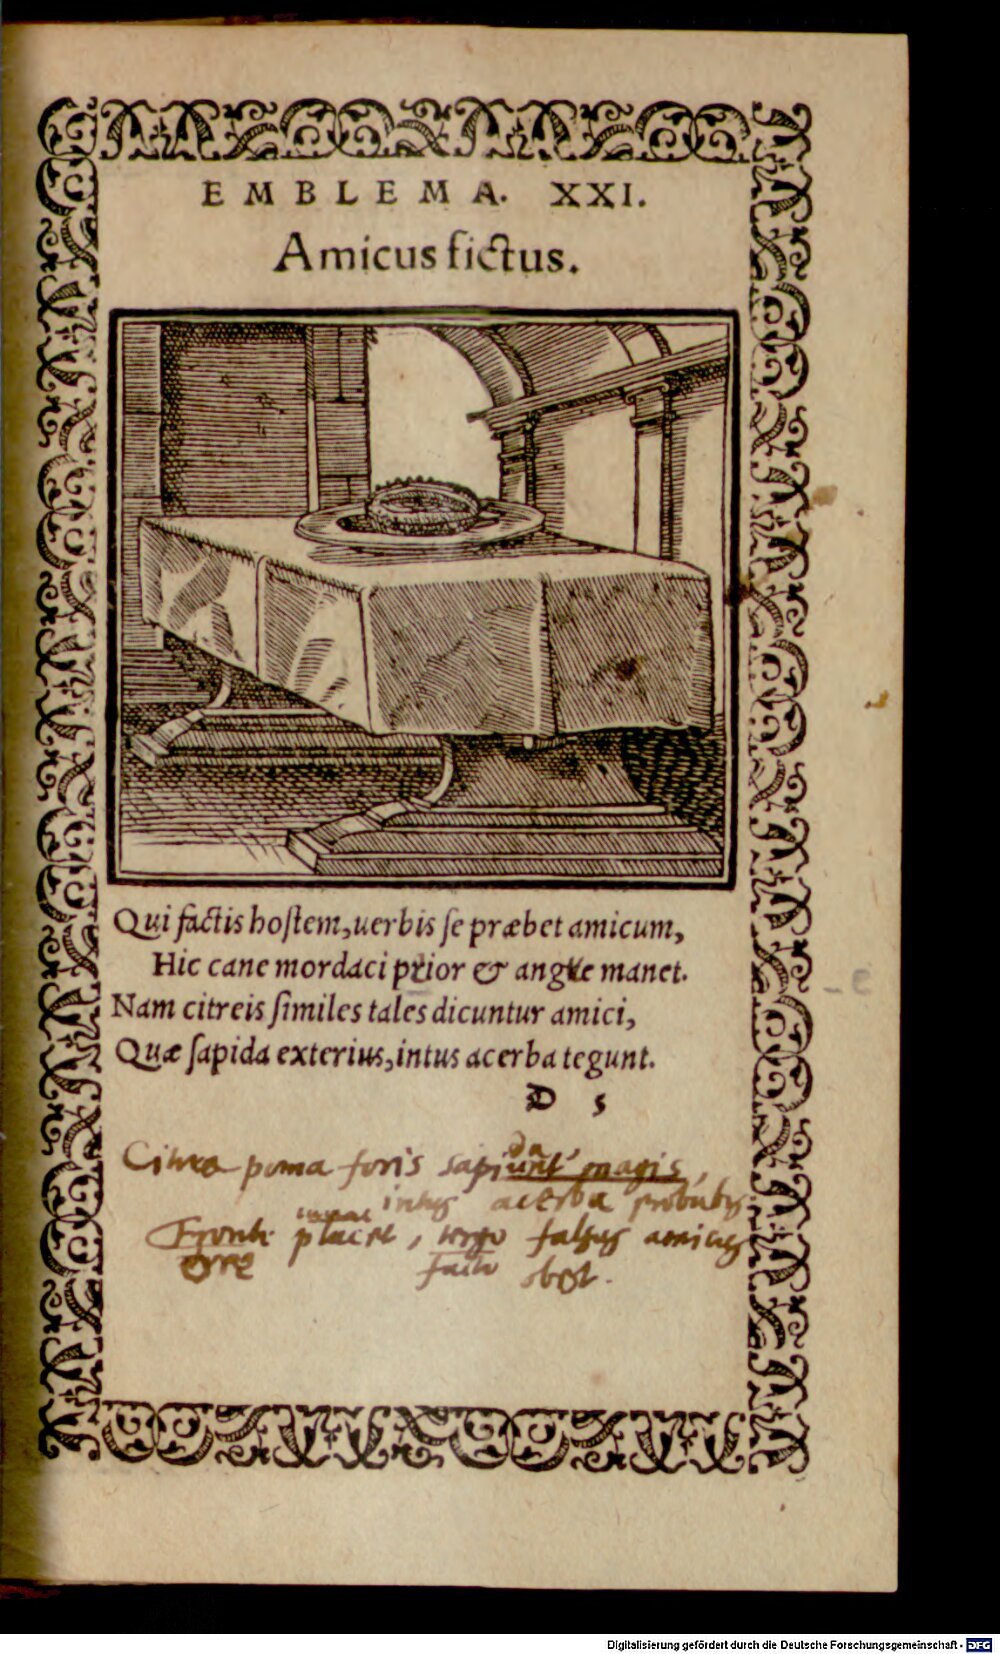 EMBLEMA. XXI.
Amicus fictus.
Qui factis hoſtem, uerbis ſe præbet amicum,
Hic cane mordaci peior & angue manet.
Nam citreis ſimiles tales dicuntur amici,
Quæ ſapida exterius, intus acerba tegunt.
D 5
Citrea poma foris sapiunt magis,
da
intus acerba
Fronte placet, tergo falsus amicus
ore facto obest.
Digitalisierung gefördert durch die Deutsche Forschungsgemeinschaft - DFG